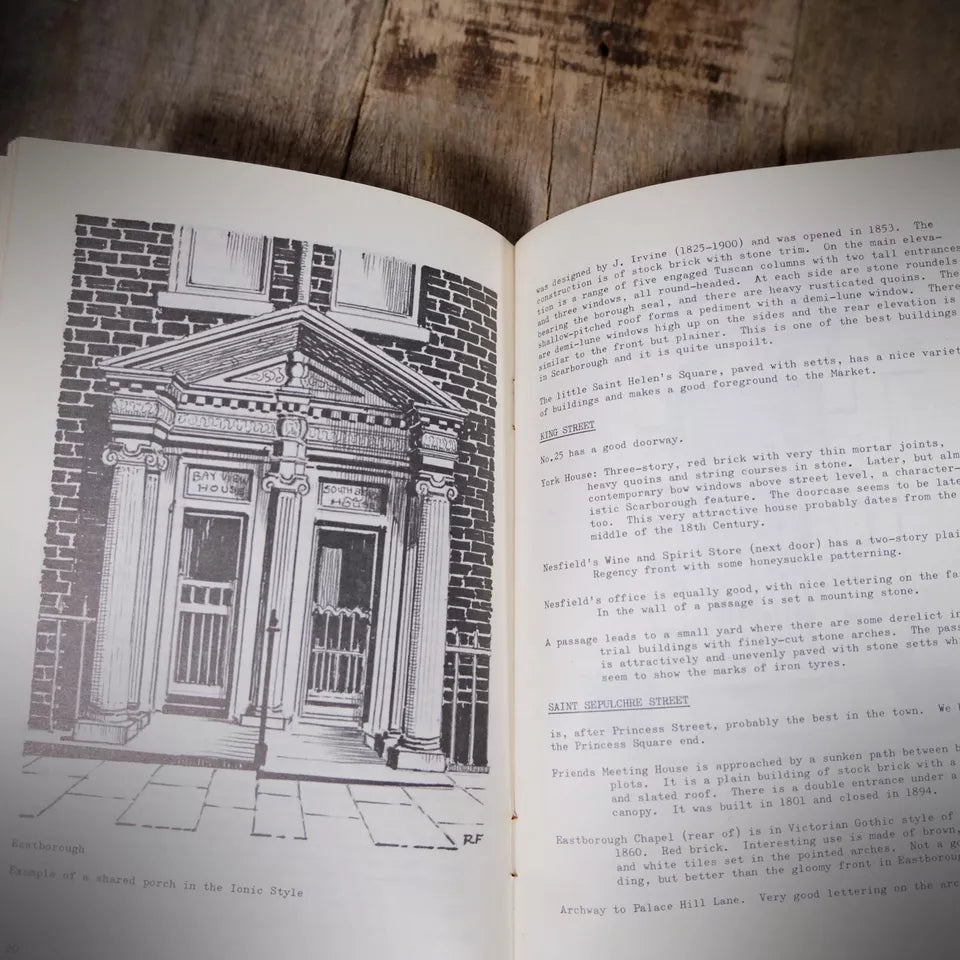 BAY VIEW
HOUSE
SOUTH BAY
HOUSE
RF
Eastborough
Example of a shared porch in the Ionic Style
20
was designed by J. Irvine (1825-1900) and was opened in 1853. The
construction is of stock brick with stone trim. On the main eleva-
tion is a range of five engaged Tuscan columns with two tall entrances
and three windows, all round-headed. At each side are stone roundels
bearing the borough seal, and there are heavy rusticated quoins. The
shallow-pitched roof forms a pediment with a demi-lune window. There
are demi-lune windows high up on the sides and the rear elevation is
similar to the front but plainer. This is one of the best buildings
in Scarborough and it is quite unspoilt.
The little Saint Helen's Square, paved with setts, has a nice variet
of buildings and makes a good foreground to the Market.
KING STREET
No.25 has a good doorway.
York House: Three-story, red brick with very thin mortar joints,
heavy quoins and string courses in stone. Later, but alm
contemporary bow windows above street level, a character-
istic Scarborough feature. The doorcase seems to be late
too. This very attractive house probably dates from the
middle of the 18th Century.
Nesfield's Wine and Spirit Store (next door) has a two-story plai
Regency front with some honeysuckle patterning.
Nesfield's office is equally good, with nice lettering on the fa
In the wall of a passage is set a mounting stone.
A passage leads to a small yard where there are some derelict in
trial buildings with finely-cut stone arches. The pass
is attractively and unevenly paved with stone setts wh
seem to show the marks of iron tyres.
SAINT SEPULCHRE STREET
is, after Princess Street, probably the best in the town. We
the Princess Square end.
Friends Meeting House is approached by a sunken path between b
plots. It is a plain building of stock brick with a
and slated roof. There is a double entrance under a
canopy. It was built in 1801 and closed in 1894.
Eastborough Chapel (rear of) is in Victorian Gothic style of
1860. Red brick. Interesting use is made of brown,
and white tiles set in the pointed arches. Not a go
ding, but better than the gloomy front in Eastboroug
Archway to Palace Hill Lane. Very good lettering on the arc